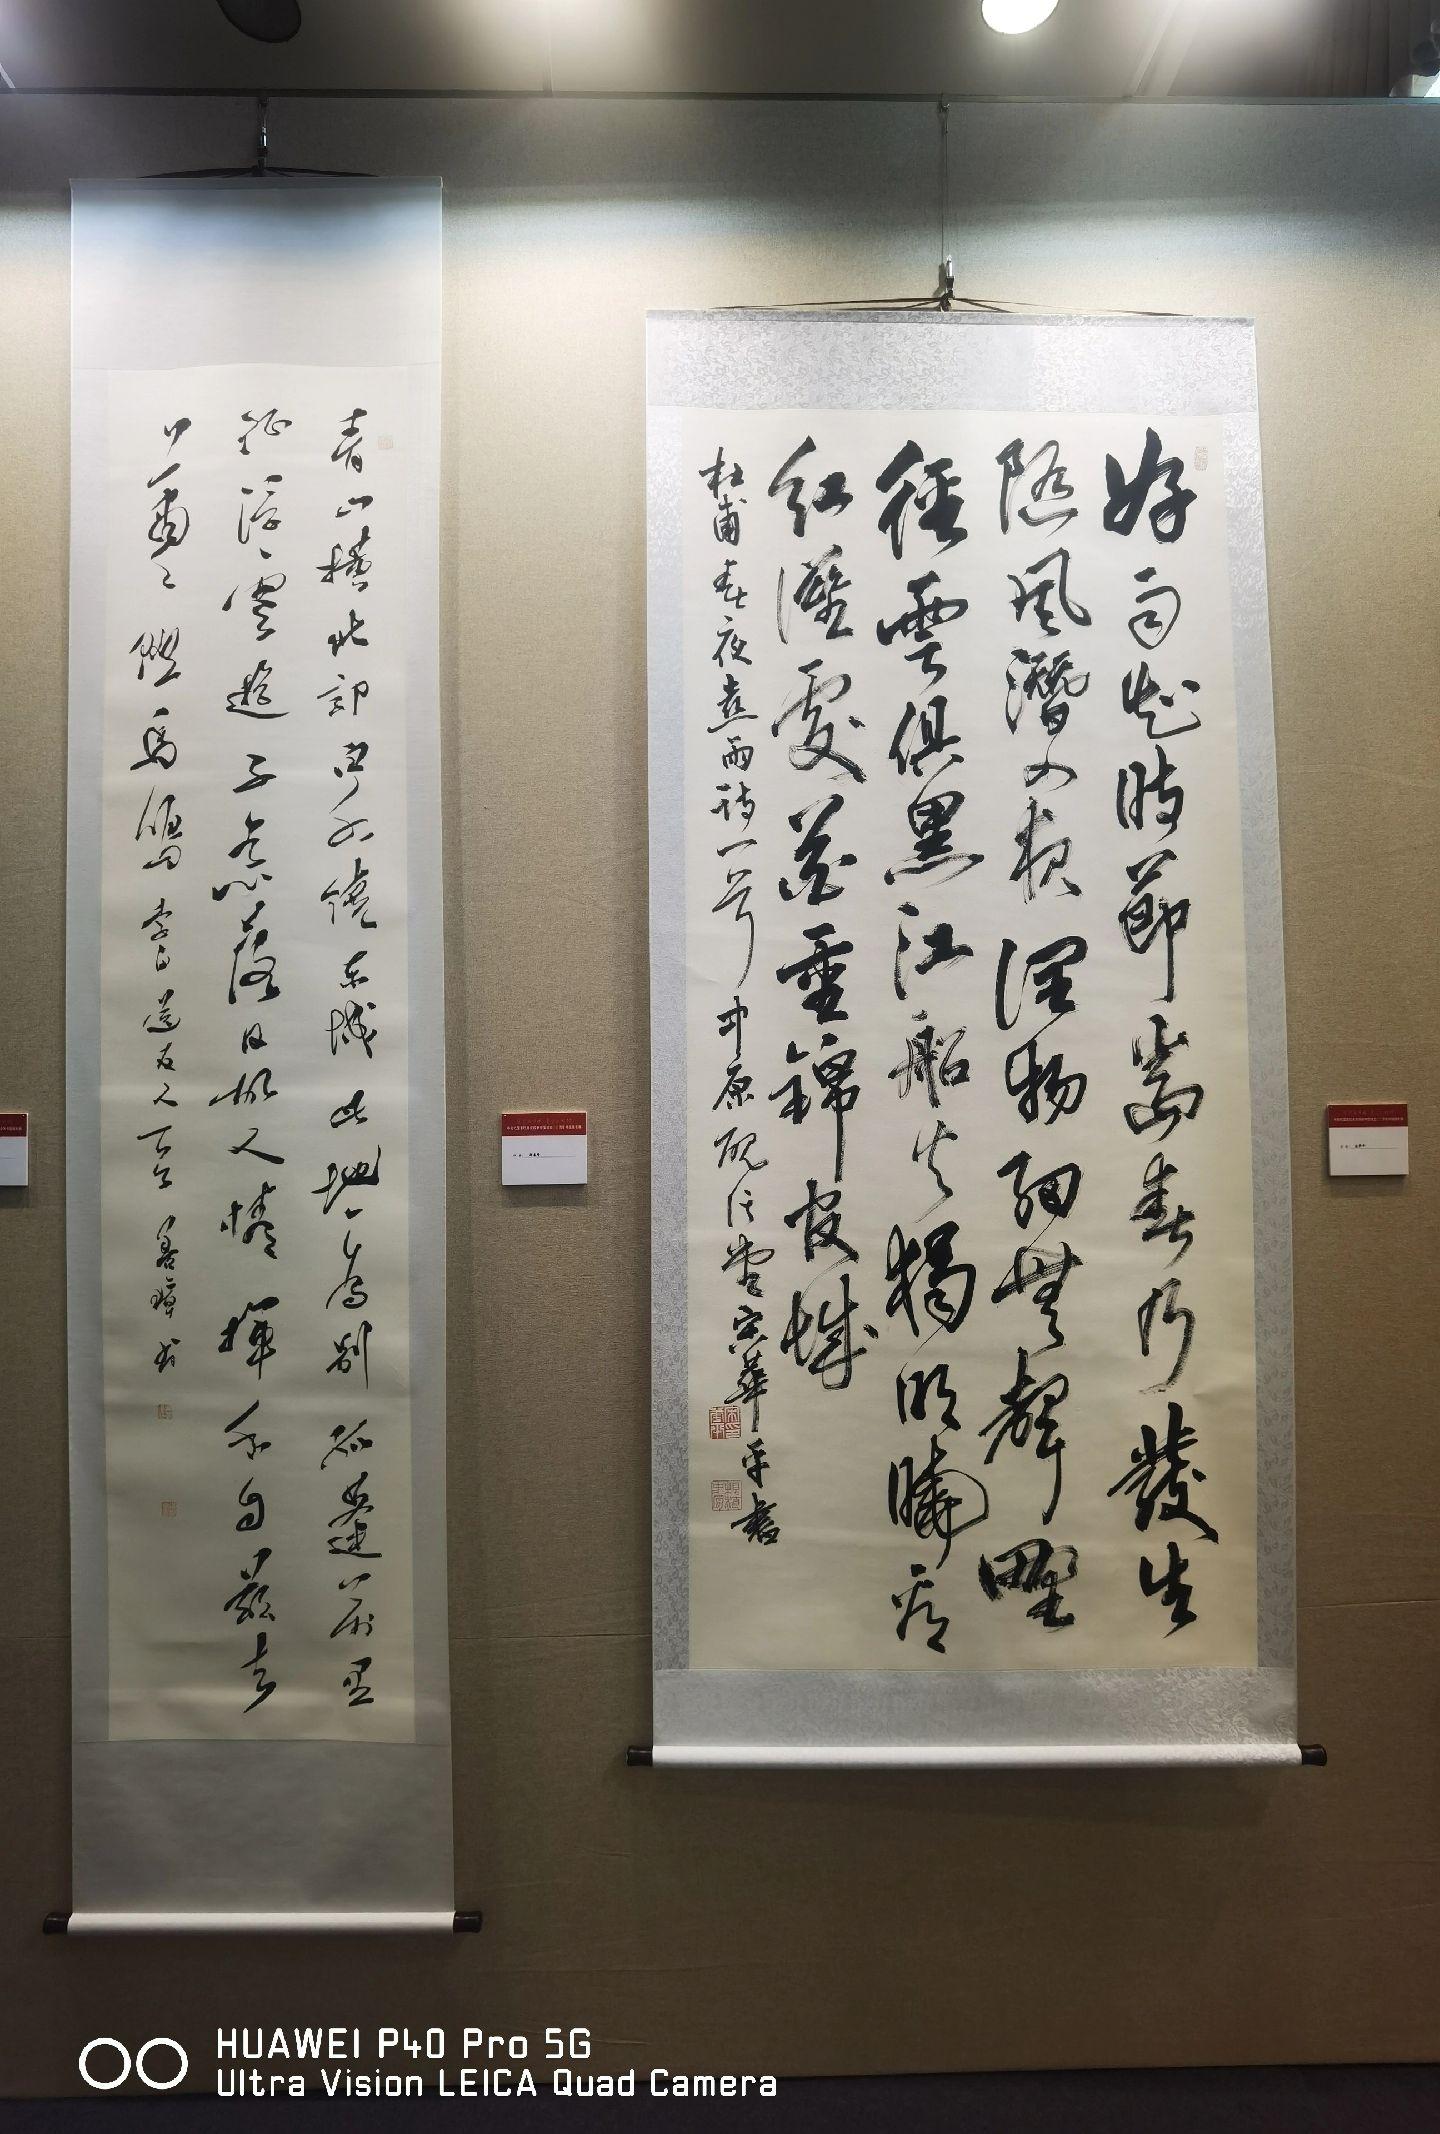 好雨知時節當春乃發生
隨風潛入夜潤物細無聲野
徑雲俱黑江船火獨明曉看
紅濕處花重錦官城
杜甫春夜喜雨詩一首中原
宋華平書
青山橫北郭白水繞東城此地一為別孤蓬萬里
征浮雲遊子意落日故人情揮手自茲去
蕭蕭班馬鳴李白送友人
HUAWEI P40 Pro 5G
Ultra Vision LEICA Quad Camera